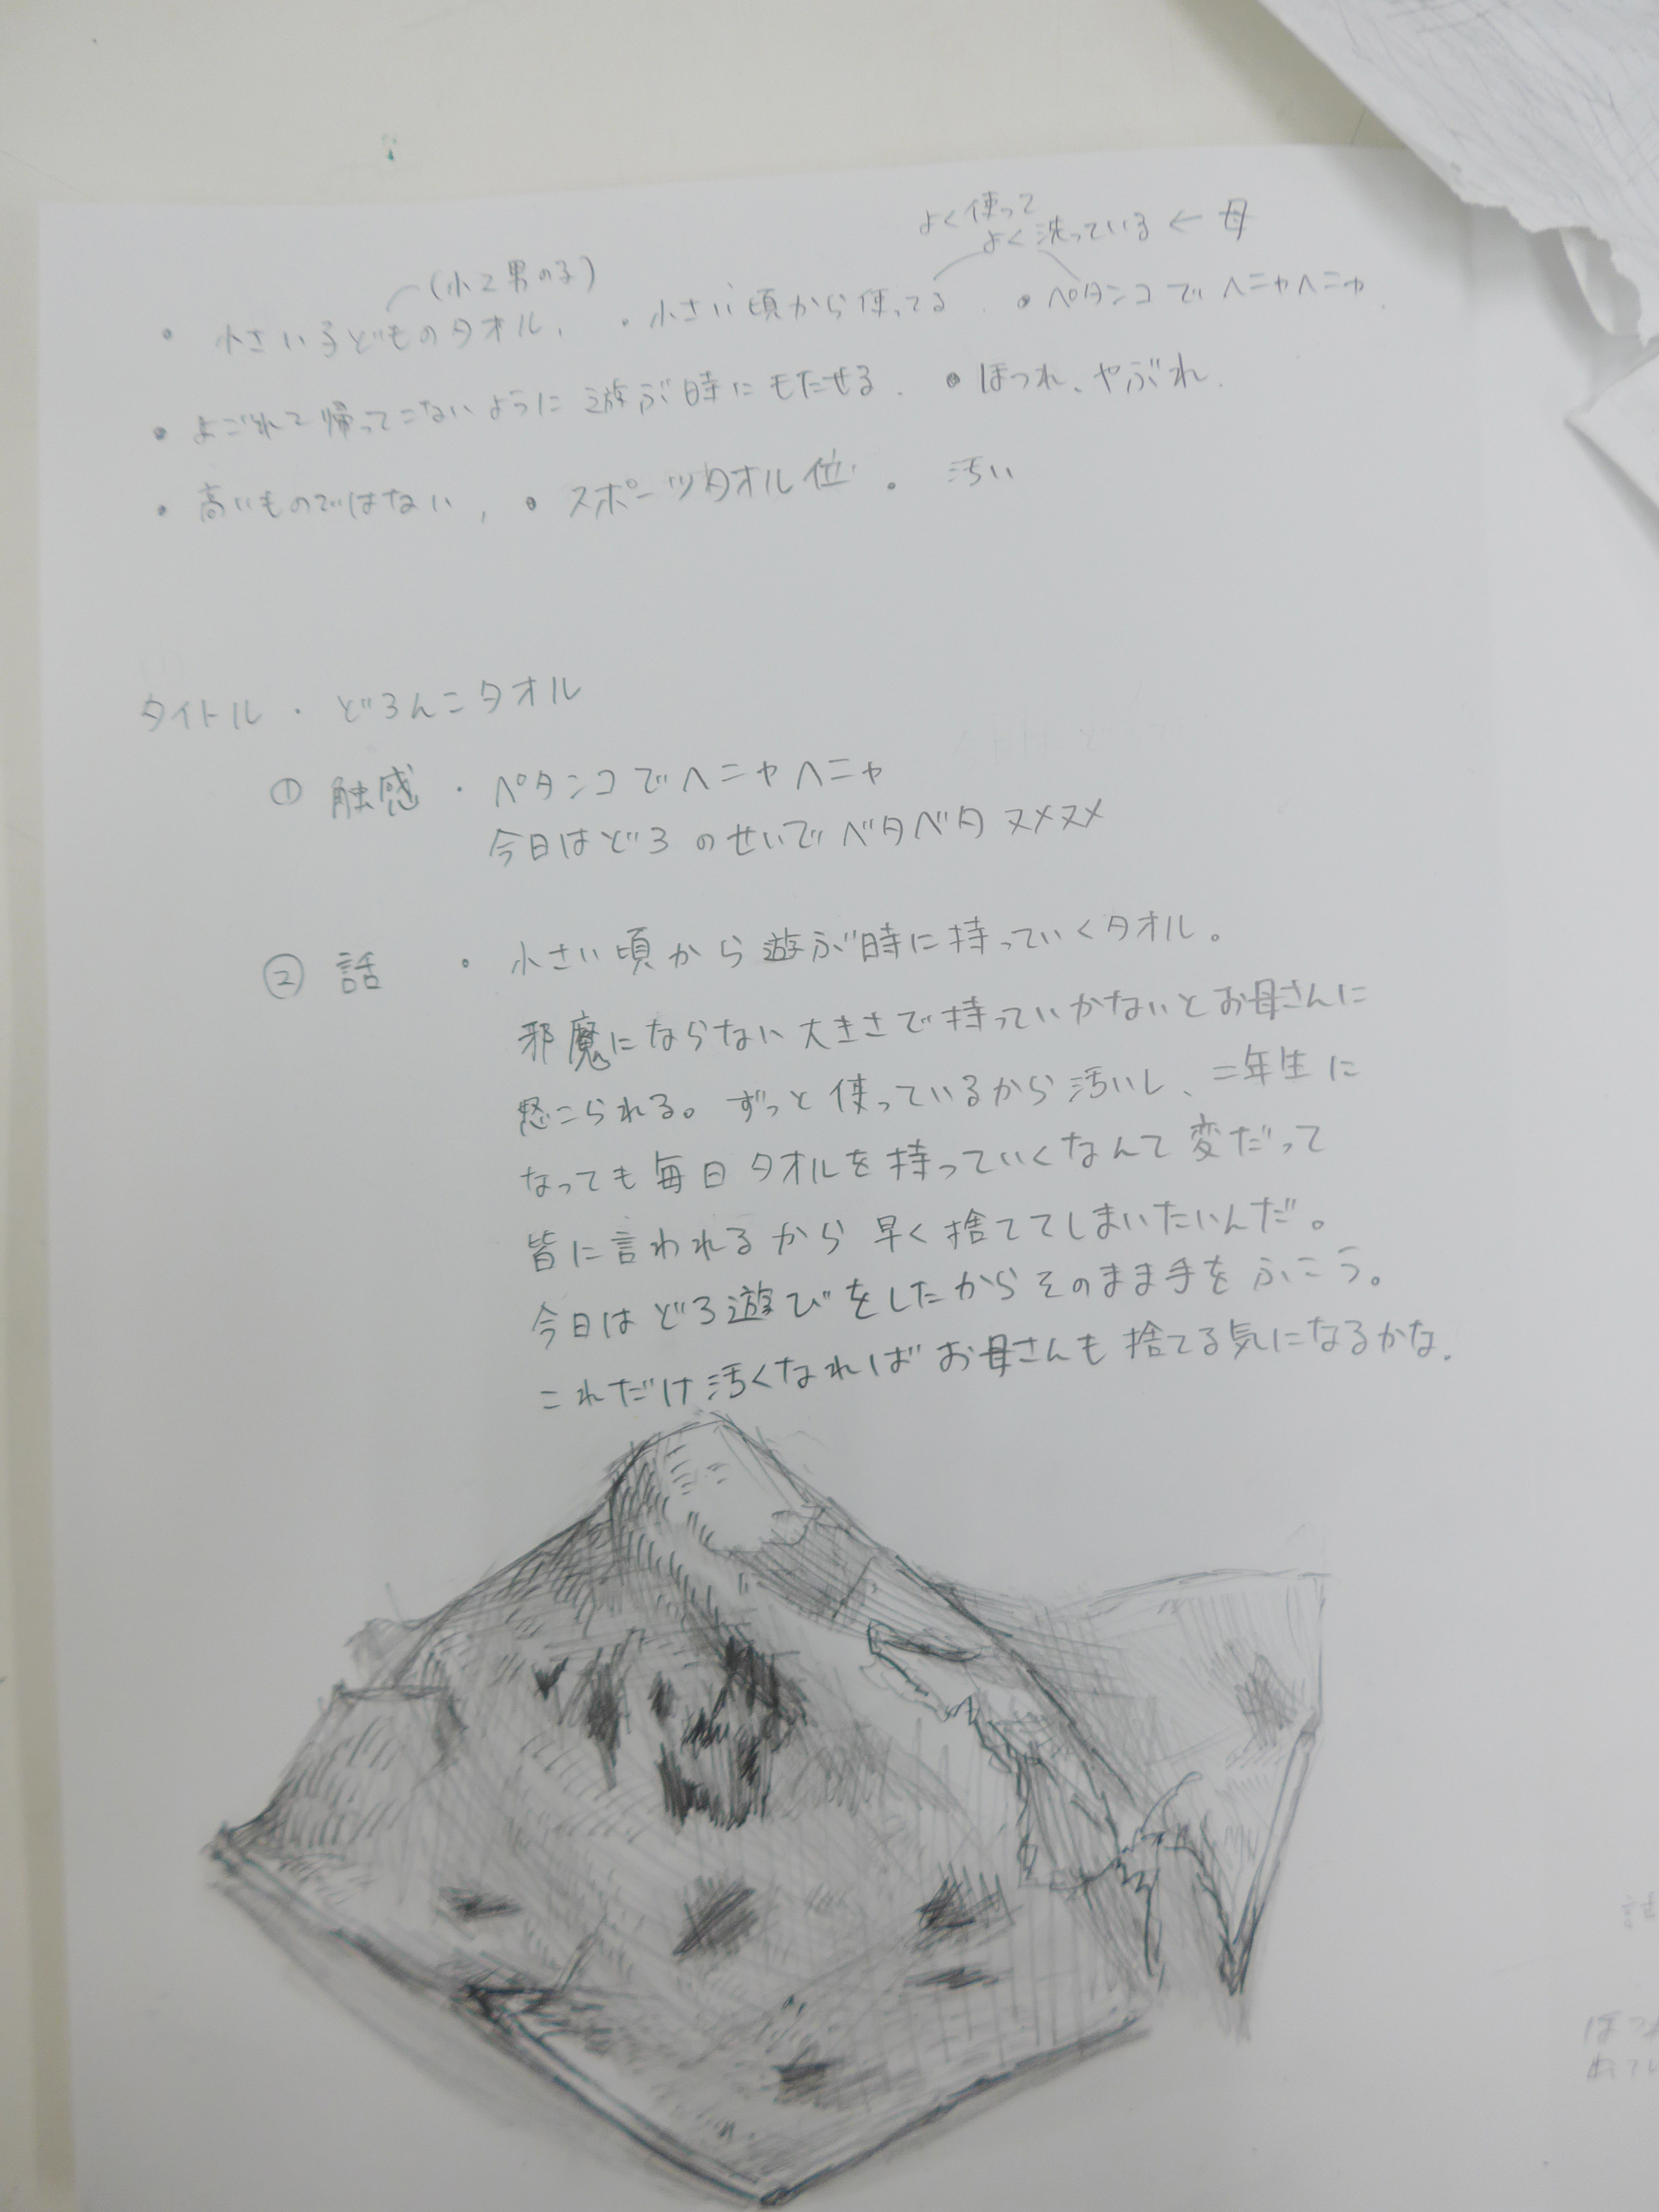 よく使って
よく洗っている ← 母
(小2男の子)
・小さい子どものタオル, ・小さい頃から使ってる. ・ペタンコでヘニャヘニャ.
・よごれて帰ってこないように遊ぶ時にもたせる. ・ほつれ、やぶれ.
・高いものではない, ・スポーツタオル位. 汚い
タイトル・どろんこタオル
① 触感・ペタンコでヘニャヘニャ
今日はどろのせいでベタベタヌメヌメ
② 話・小さい頃から遊ぶ時に持っていくタオル。
邪魔にならない大きさで持っていかないとお母さんに
怒こられる。ずっと使っているから汚いし、二年生に
なっても毎日タオルを持っていくなんて変だって
皆に言われるから早く捨ててしまいたいんだ。
今日はどろ遊びをしたからそのまま手をふこう。
これだけ汚くなればお母さんも捨てる気になるかな.